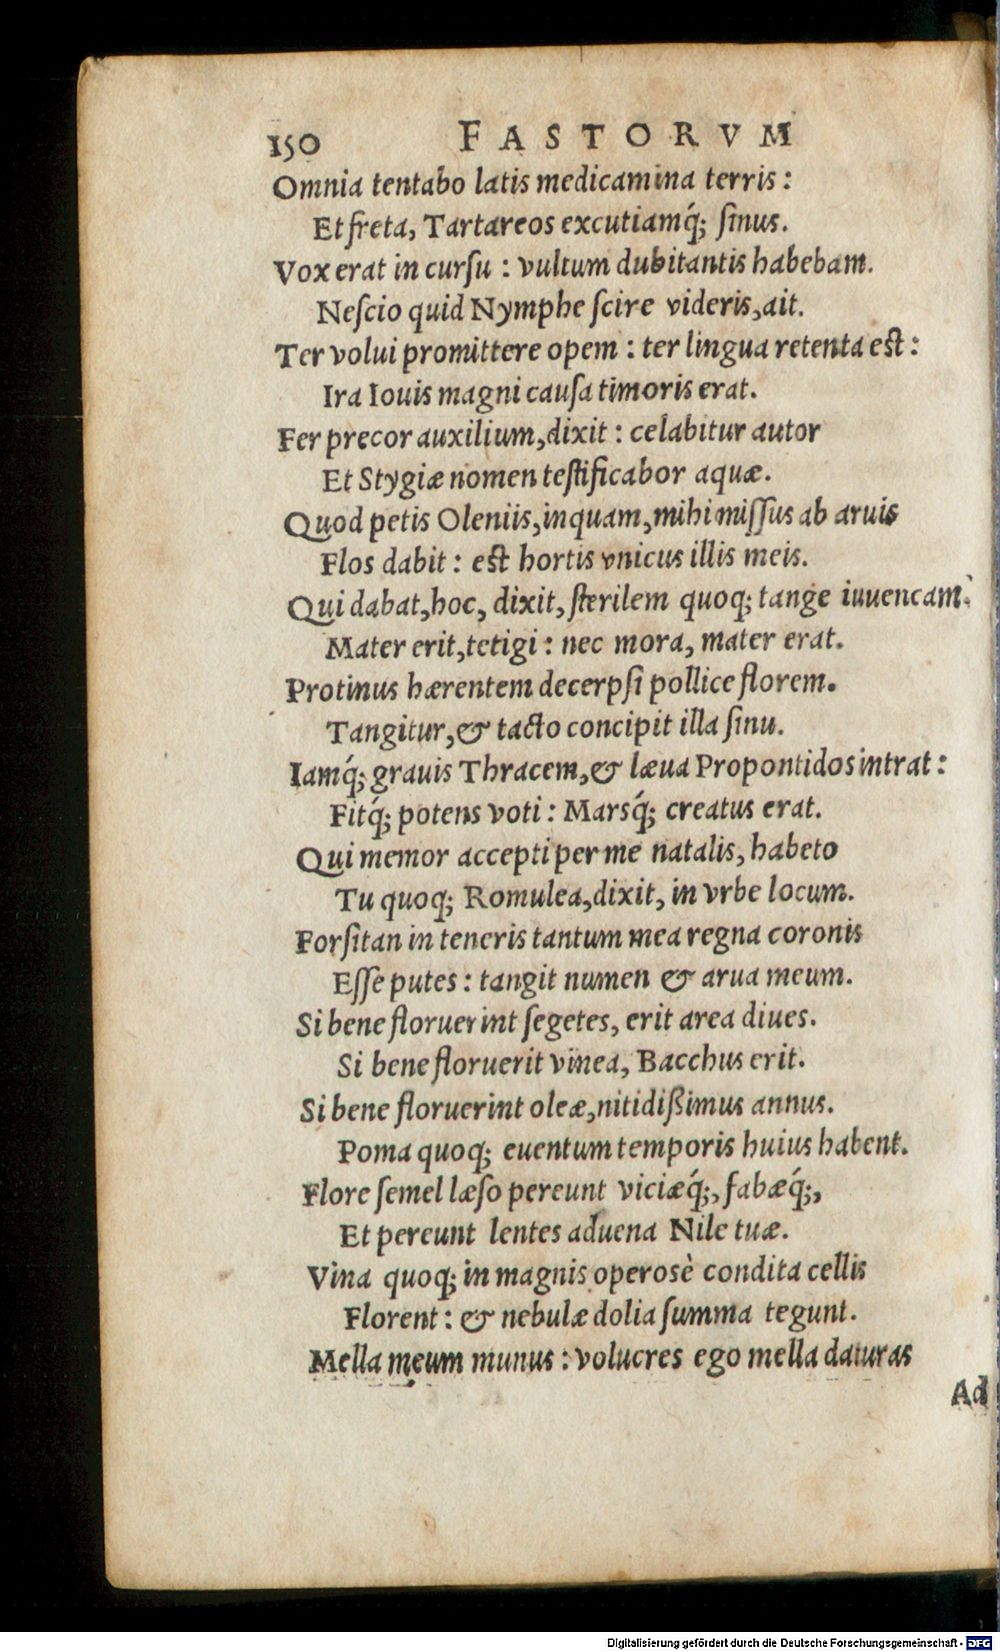 150 FASTORVM
Omnia tentabo latis medicamina terris:
Et freta, Tartareos excutiamq́; ſinus.
Vox erat in curſu: vultum dubitantis habebam.
Neſcio quid Nymphe ſcire videris, ait.
Ter volui promittere opem: ter lingua retenta est:
Ira Iouis magni cauſa timoris erat.
Fer precor auxilium, dixit: celabitur autor
Et Stygiæ nomen teſtificabor aquæ.
Quod petis Oleniis, inquam, mihi miſſus ab aruis
Flos dabit: est hortis vnicus illis meis.
Qui dabat, hoc, dixit, ſterilem quoq; tange iuuencam.
Mater erit, tetigi: nec mora, mater erat.
Protinus hærentem decerpſi pollice florem.
Tangitur, & tacto concipit illa ſinu.
Iamq́; grauis Thracem, & læua Propontidos intrat:
Fitq́; potens voti: Marsq́; creatus erat.
Qui memor accepti per me natalis, habeto
Tu quoq; Romulea, dixit, in vrbe locum.
Forſitan in teneris tantum mea regna coronis
Eſſe putes: tangit numen & arua meum.
Si bene floruerint ſegetes, erit area diues.
Si bene floruerit vinea, Bacchus erit.
Si bene floruerint oleæ, nitidißimus annus.
Poma quoq; euentum temporis huius habent.
Flore ſemel læſo pereunt viciæq́;, fabæq́;,
Et pereunt lentes aduena Nile tuæ.
Vina quoq; in magnis operosè condita cellis
Florent: & nebulæ dolia ſumma tegunt.
Mella meum munus: volucres ego mella daturas
Ad
Digitalisierung gefördert durch die Deutsche Forschungsgemeinschaft - DFG